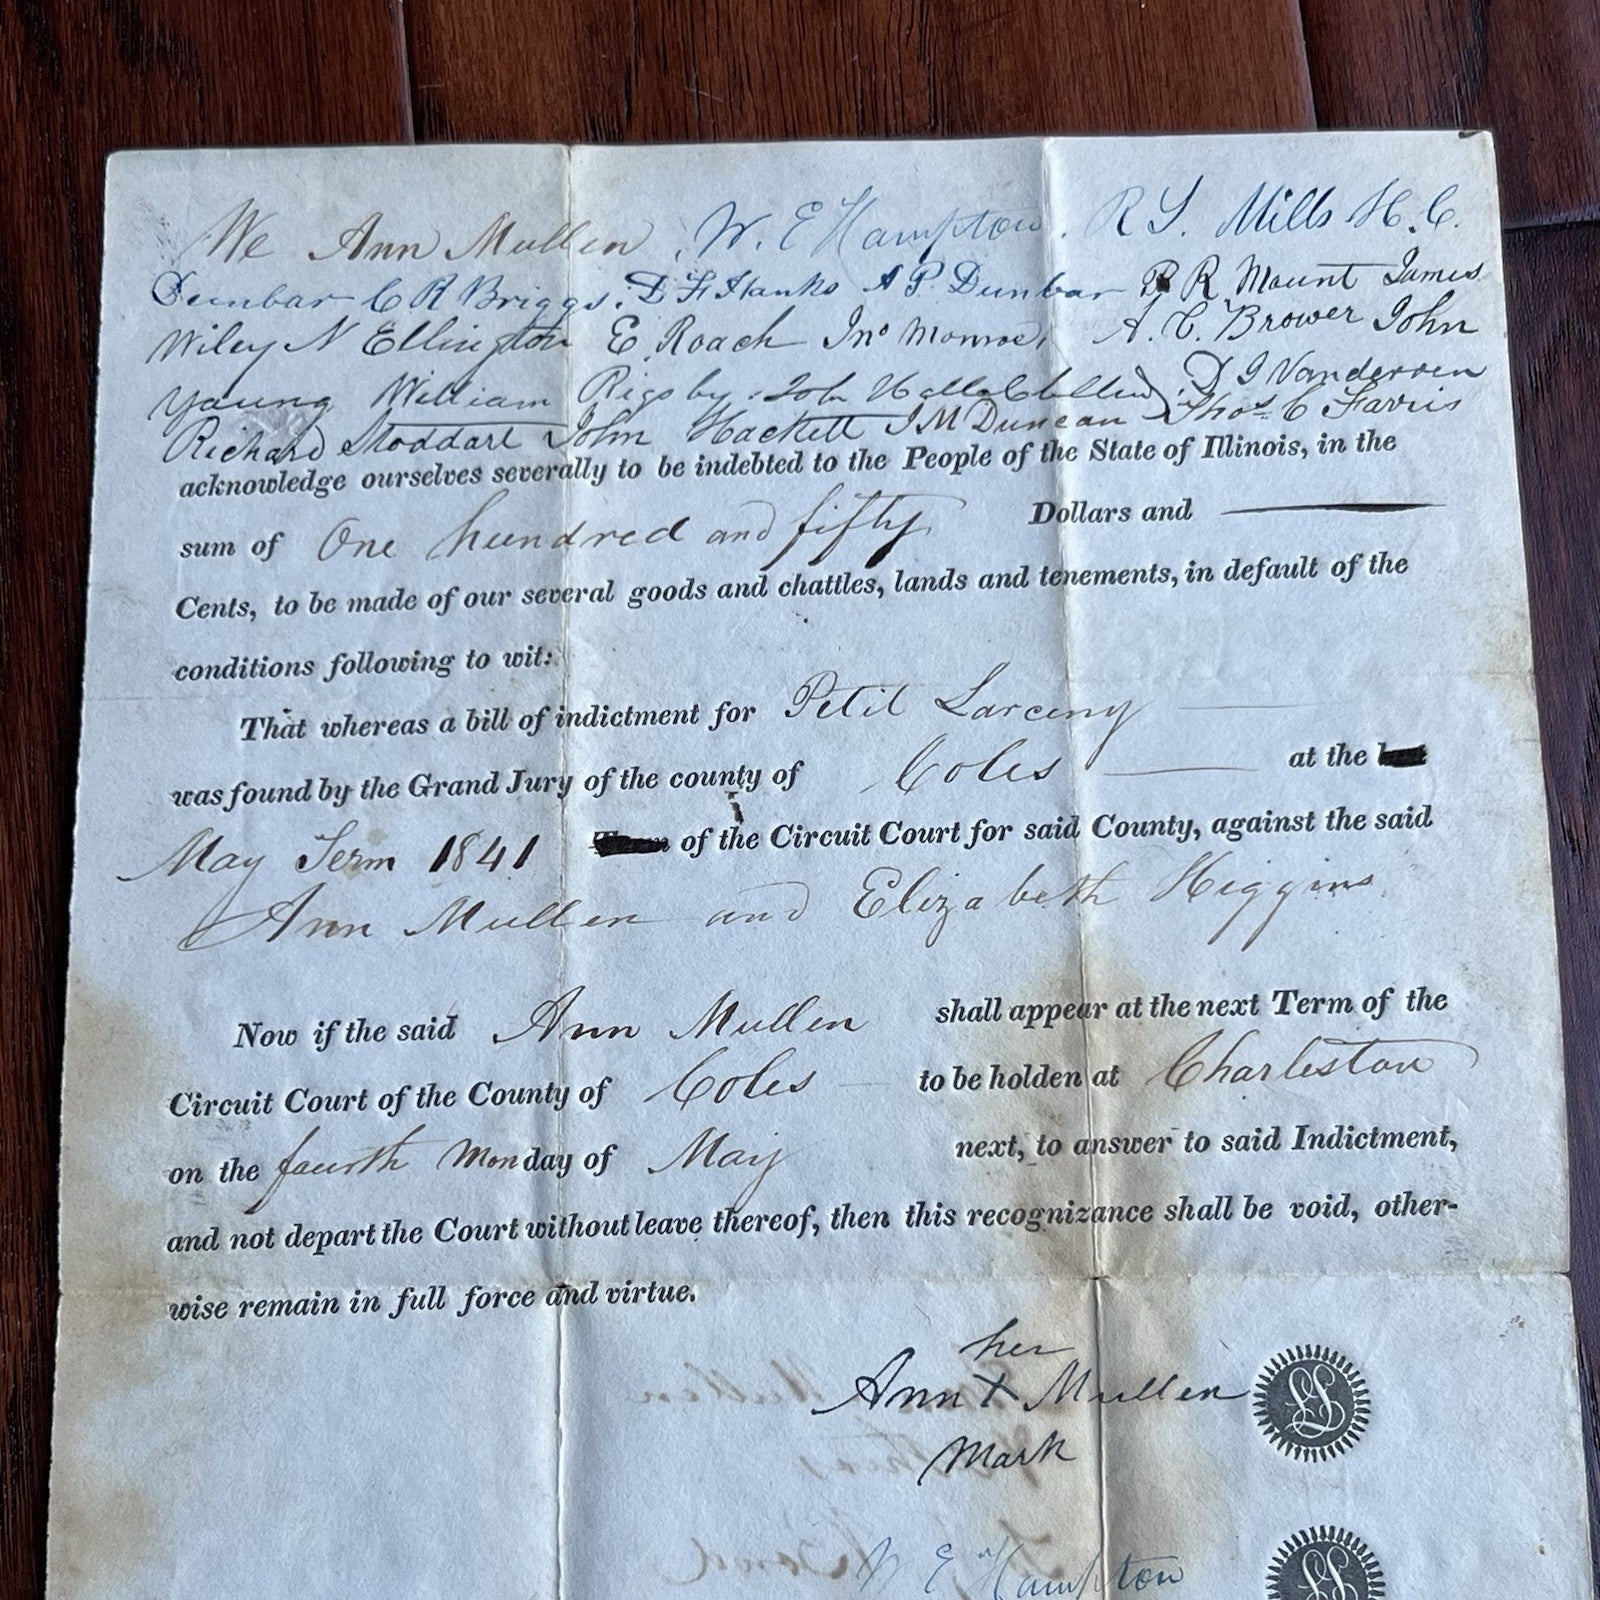 We Ann Mullen, W. E Hampton. R S. Mills H. C.
Dunbar C R Briggs. D F Hanks A P. Dunbar R. Mount James
Wiley N Ellington E. Roach Jno Monroe, A. C. Brower John
Young William Rigsby. John D J Vanderren
Richard Stoddart John Hackett J M Duncan Thos C Farris
acknowledge ourselves severally to be indebted to the People of the State of Illinois, in the
sum of One hundred and fifty Dollars and
Cents, to be made of our several goods and chattles, lands and tenements, in default of the
conditions following to wit:
That whereas a bill of indictment for Petit Larceny
was found by the Grand Jury of the county of Coles at the
May Term 1841 of the Circuit Court for said County, against the said
Ann Mullen and Elizabeth Higgins
Now if the said Ann Mullen shall appear at the next Term of the
Circuit Court of the County of Coles to be holden at Charleston
on the fourth Monday of May next, to answer to said Indictment,
and not depart the Court without leave thereof, then this recognizance shall be void, other-
wise remain in full force and virtue.
her
Ann X Mullen LS
Mark
W E Hampton LS